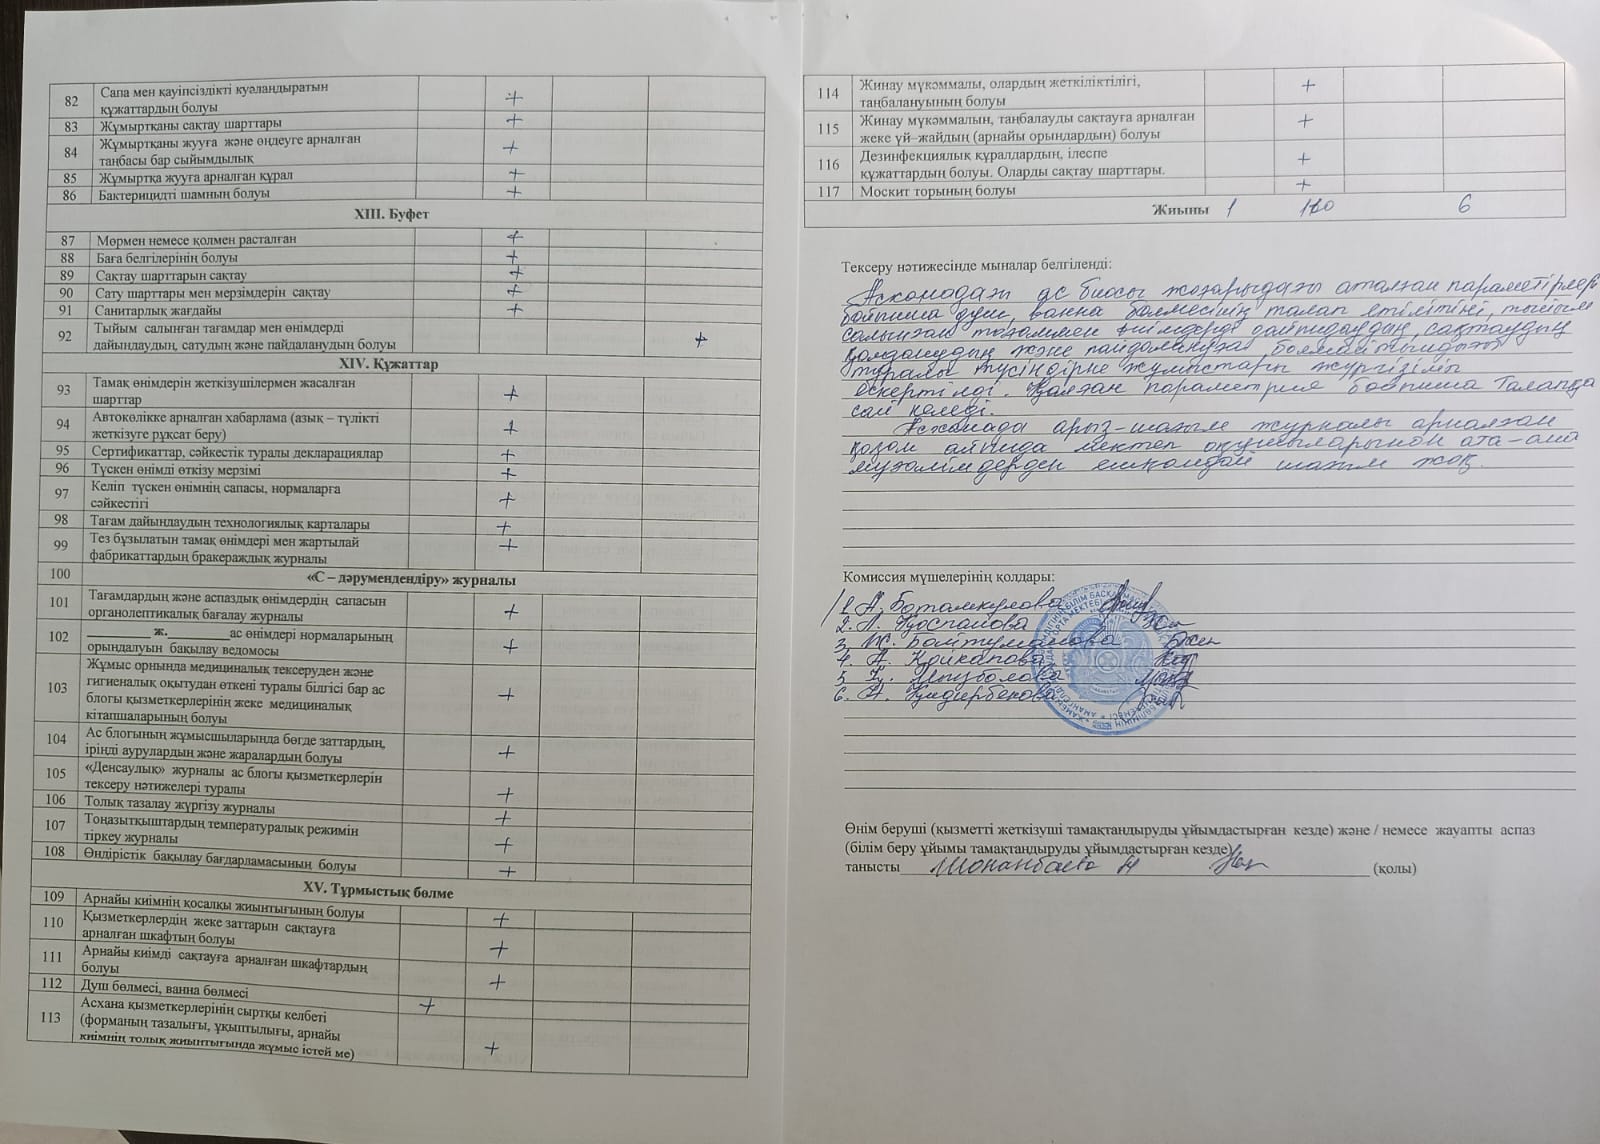 82 Сапа мен қауіпсіздікті куәландыратын
құжаттардың болуы +
83 Жұмыртқаны сақтау шарттары +
84 Жұмыртқаны жууға және өңдеуге арналған
таңбасы бар сыйымдылық +
85 Жұмыртқа жууға арналған құрал +
86 Бактерицидті шамның болуы +
XIII. Буфет
87 Мөрмен немесе қолмен расталған +
88 Баға белгілерінің болуы +
89 Сақтау шарттарын сақтау +
90 Сату шарттары мен мерзімдерін сақтау +
91 Санитарлық жағдайы +
92 Тыйым салынған тағамдар мен өнімдерді
дайындаудың, сатудың және пайдаланудың болуы +
XIV. Құжаттар
93 Тамақ өнімдерін жеткізушілермен жасалған
шарттар +
94 Автокөлікке арналған хабарлама (азық – түлікті
жеткізуге рұқсат беру) +
95 Сертификаттар, сәйкестік туралы декларациялар +
96 Түскен өнімді өткізу мерзімі +
97 Келіп түскен өнімнің сапасы, нормаларға
сәйкестігі +
98 Тағам дайындаудың технологиялық карталары +
99 Тез бұзылатын тамақ өнімдері мен жартылай
фабрикаттардың бракераждық журналы +
100 «С – дәрумендендіру» журналы
101 Тағамдардың және аспаздық өнімдердің сапасын
органолептикалық бағалау журналы +
102 _________ ж._________ас өнімдері нормаларының
орындалуын бақылау ведомосы +
103 Жұмыс орнында медициналық тексеруден және
гигиеналық оқытудан өткені туралы білгісі бар ас
блогы қызметкерлерінің жеке медициналық
кітапшаларының болуы +
104 Ас блогының жұмысшыларында бөгде заттардың,
іріңді аурулардың және жаралардың болуы +
105 «Денсаулық» журналы ас блогы қызметкерлерін
тексеру нәтижелері туралы +
106 Толық тазалау жүргізу журналы +
107 Тоңазытқыштардың температуралық режимін
тіркеу журналы +
108 Өндірістік бақылау бағдарламасының болуы +
XV. Тұрмыстық бөлме
109 Арнайы киімнің қосалқы жиынтығының болуы +
110 Қызметкерлердің жеке заттарын сақтауға
арналған шкафтың болуы +
111 Арнайы киімді сақтауға арналған шкафтардың
болуы +
112 Душ бөлмесі, ванна бөлмесі +
113 Асхана қызметкерлерінің сыртқы келбеті
(форманың тазалығы, ұқыптылығы, арнайы
киімнің толық жиынтығында жұмыс істей ме) +
114 Жинау мүкәммалы, олардың жеткіліктілігі,
таңбалануының болуы +
115 Жинау мүкәммалын, таңбалауды сақтауға арналған
жеке үй–жайдың (арнайы орындардың) болуы +
116 Дезинфекциялық құралдардың, ілеспе
құжаттардың болуы. Оларды сақтау шарттары. +
117 Москит торының болуы +
Жиыны 1 110 6
Тексеру нәтижесінде мыналар белгіленді:
Асханадағы ас блогы жоғарыдағы аталған параметірлер
бойынша душ, ванна бөлмесінің талап етілетіні, тыйым
салынған тағаммен өнімдерді дайындаудың, сақтаудың
қолданудың және пайдалануға болмайтындығы
туралы түсіндірме жұмыстары жүргізіліп
ескертілді. Қалған параметрлер бойынша Талапқа
сай келеді.
Асханада арыз-шағым журналы арналған
қазан айында мектеп оқушыларынан ата-ана
мұғалімдерден ешқандай шағым жоқ.
Комиссия мүшелерінің қолдары:
1. А. Ботамкулова
2. А. Доспанова
3. Ж. Байтуманова
4. А. Қойкапова
5.
6. А. Кудербекова
Өнім беруші (қызметті жеткізуші тамақтандыруды ұйымдастырған кезде) және / немесе жауапты аспаз
(білім беру ұйымы тамақтандыруды ұйымдастырған кезде)
танысты Шонанбаева Н (қолы)